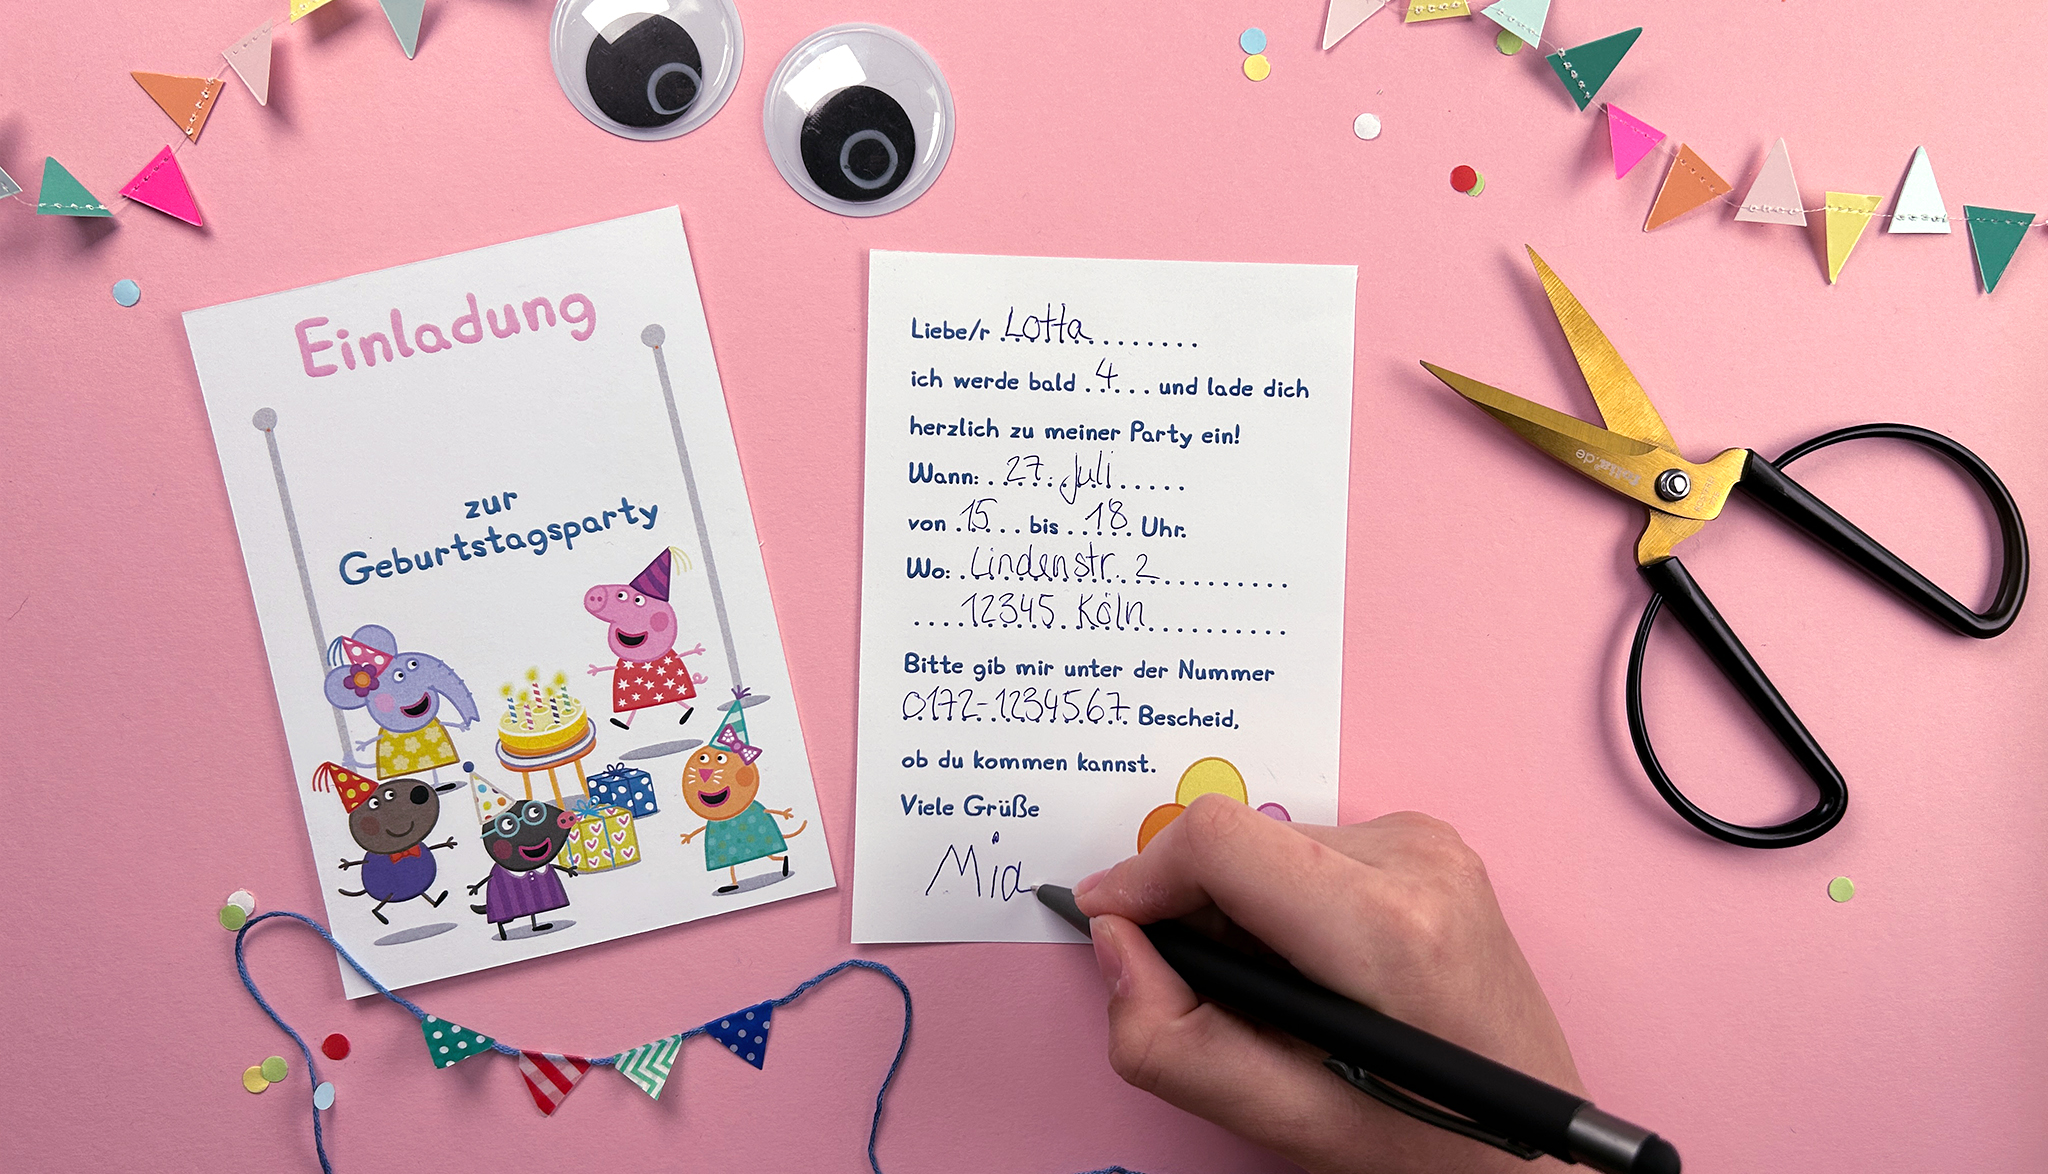 Einladung
zur
Geburtstagsparty
Liebe/r Lotta
ich werde bald 4 und lade dich
herzlich zu meiner Party ein!
Wann: 27. Juli
von 15 bis 18 Uhr.
Wo: Lindenstr. 2
12345 Köln
Bitte gib mir unter der Nummer
0172-1234567 Bescheid,
ob du kommen kannst.
Viele Grüße
Mia